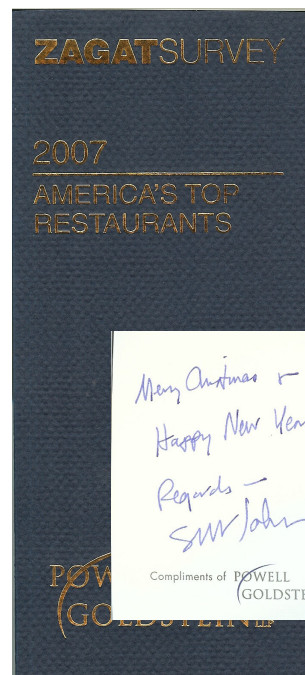 ZAGATSURVEY
2007
AMERICA'S TOP
RESTAURANTS
Merry Christmas &
Happy New Year
Regards —
Compliments of POWELL
GOLDSTE
POW
GOLDSTEIN LLP